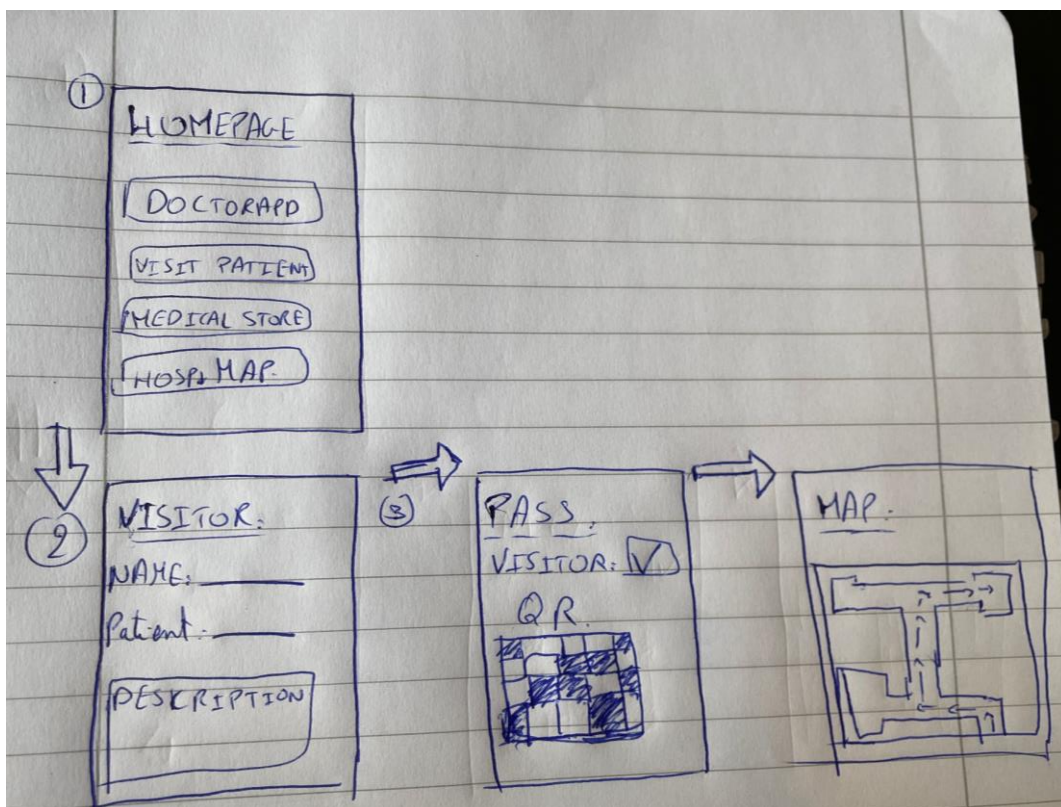 ①
HOMEPAGE
DOCTORAPD
VISIT PATIENT
MEDICAL STORE
HOSPI MAP.
②
VISITOR:
NAME:
Patient:
DESCRIPTION
③
PASS.
VISITOR:
QR.
MAP.